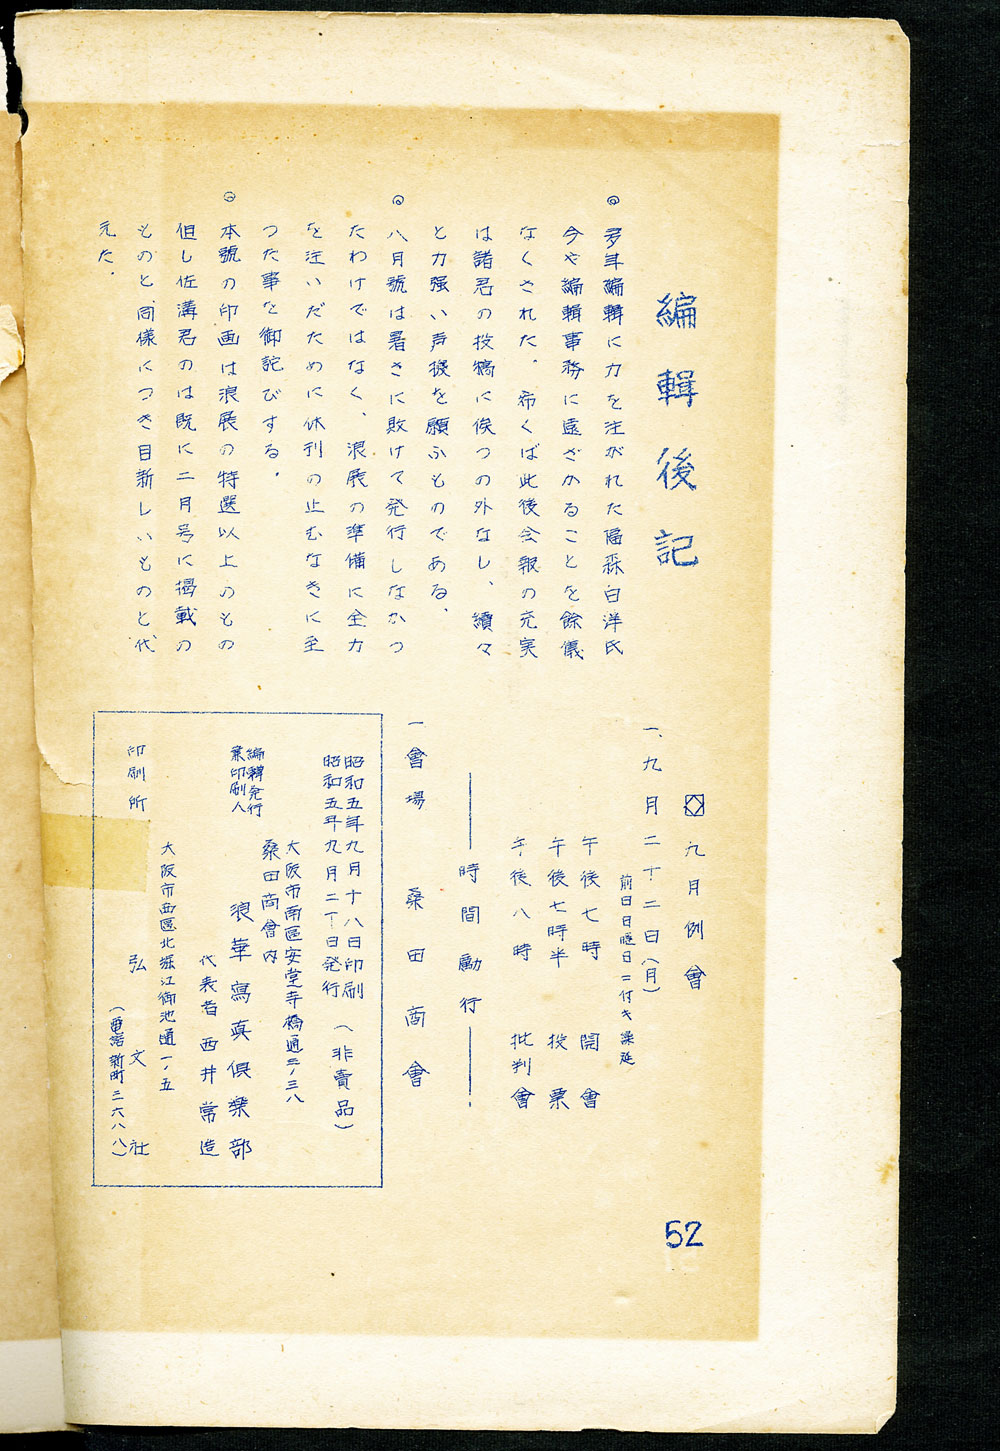 編輯後記
◎多年編輯に力を注がれた福森白洋氏
今や編輯事務に遠ざかることを餘儀
なくされた。希くば此後会報の充実
は諸君の投稿に俟つの外なし、續々
と力强い声援を願ふものである、
◎八月號は暑さに敗けて発行しなかつ
たわけではなく、浪展の準備に全力
を注いだために休刊の止むなきに至
つた事を御詫びする。
◎本號の印画は浪展の特選以上のもの
但し佐溝君のは既に二月号に掲載の
ものと同様につき目新しいものと代
えた。
九月例會
一、九月二十二日(月)
前日日曜日ニ付キ繰延
午後七時 開會
午後七時半 投票
午後八時 批判會
時間勵行
一會場 桑田商會
昭和五年九月十八日印刷
昭和五年九月二十日発行 (非賣品)
大阪市南區安堂寺橋通三ノ三八
桑田商會内
編輯発行
兼印刷人 浪華寫真俱樂部
代表者 西井常造
大阪市西區北堀江御池通一ノ五
印刷所 弘文社
(電話新町二六八八)
52